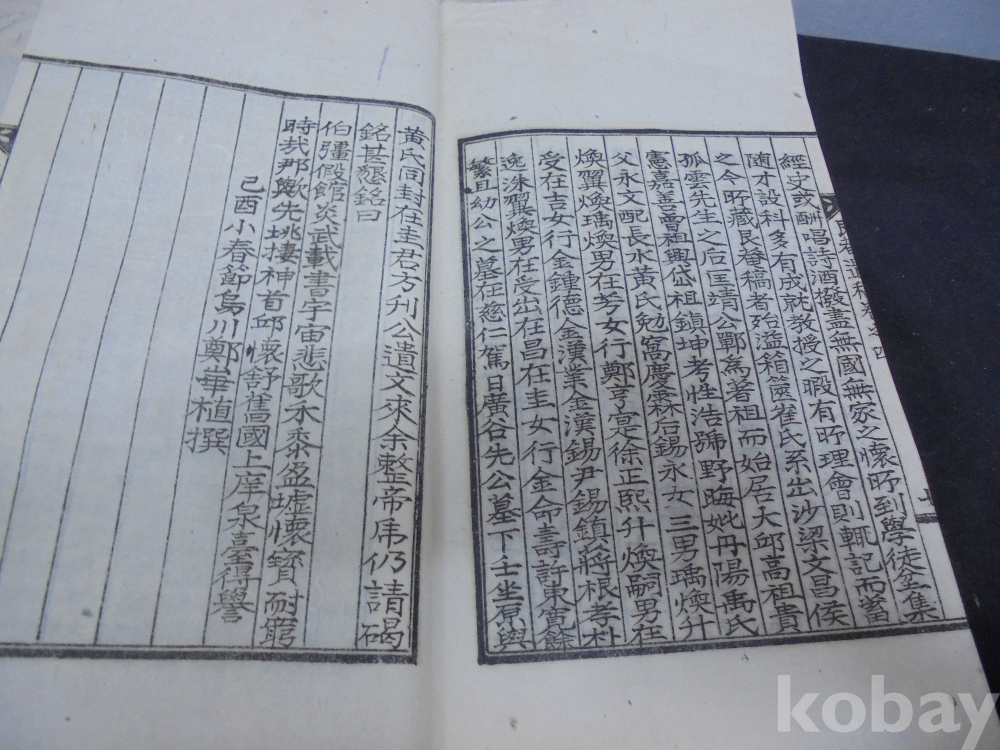 經史或酬唱詩酒撥盡無國無家之懷所到學徒坌集
随才設科多有成就教授之暇有所理會則輒記而當
之今所藏艮養稿者殆溢箱篋崔氏系出沙梁文昌侯
孤雲先生之后匡靖公鄲為著祖而始居大邱高祖貴
憲嘉善曾祖興岱祖鎮坤考性浩號野晦妣丹陽禹氏
父永文配長水黄氏勉窩慶霖后錫永女三男瑀煥升
煥翼煥瑀煥男在芳女行鄭亨寔徐正熙升煥嗣男在
受在吉女行金鍾德金漢業金漢錫尹錫鎮蔣根孝朴
逸洙翼煥男在受出在昌在圭女行金命壽許東寬餘
繁且幼公之墓在慈仁駕日廣谷先公墓下壬坐原與
黄氏同封在圭君方刋公遺文來余整帝乕仍請碣
銘甚懇銘曰
伯彊假館炎武載書宇宙悲歌禾黍盈墟懷寳耐窮
時我那歟先垗捿神首邱懷舒舊國上庠泉臺得譽
己酉小春節烏川鄭崋植撰
kobay